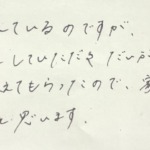 しているのですが、
としていただき だいが
えてもらったので、家
と思います。